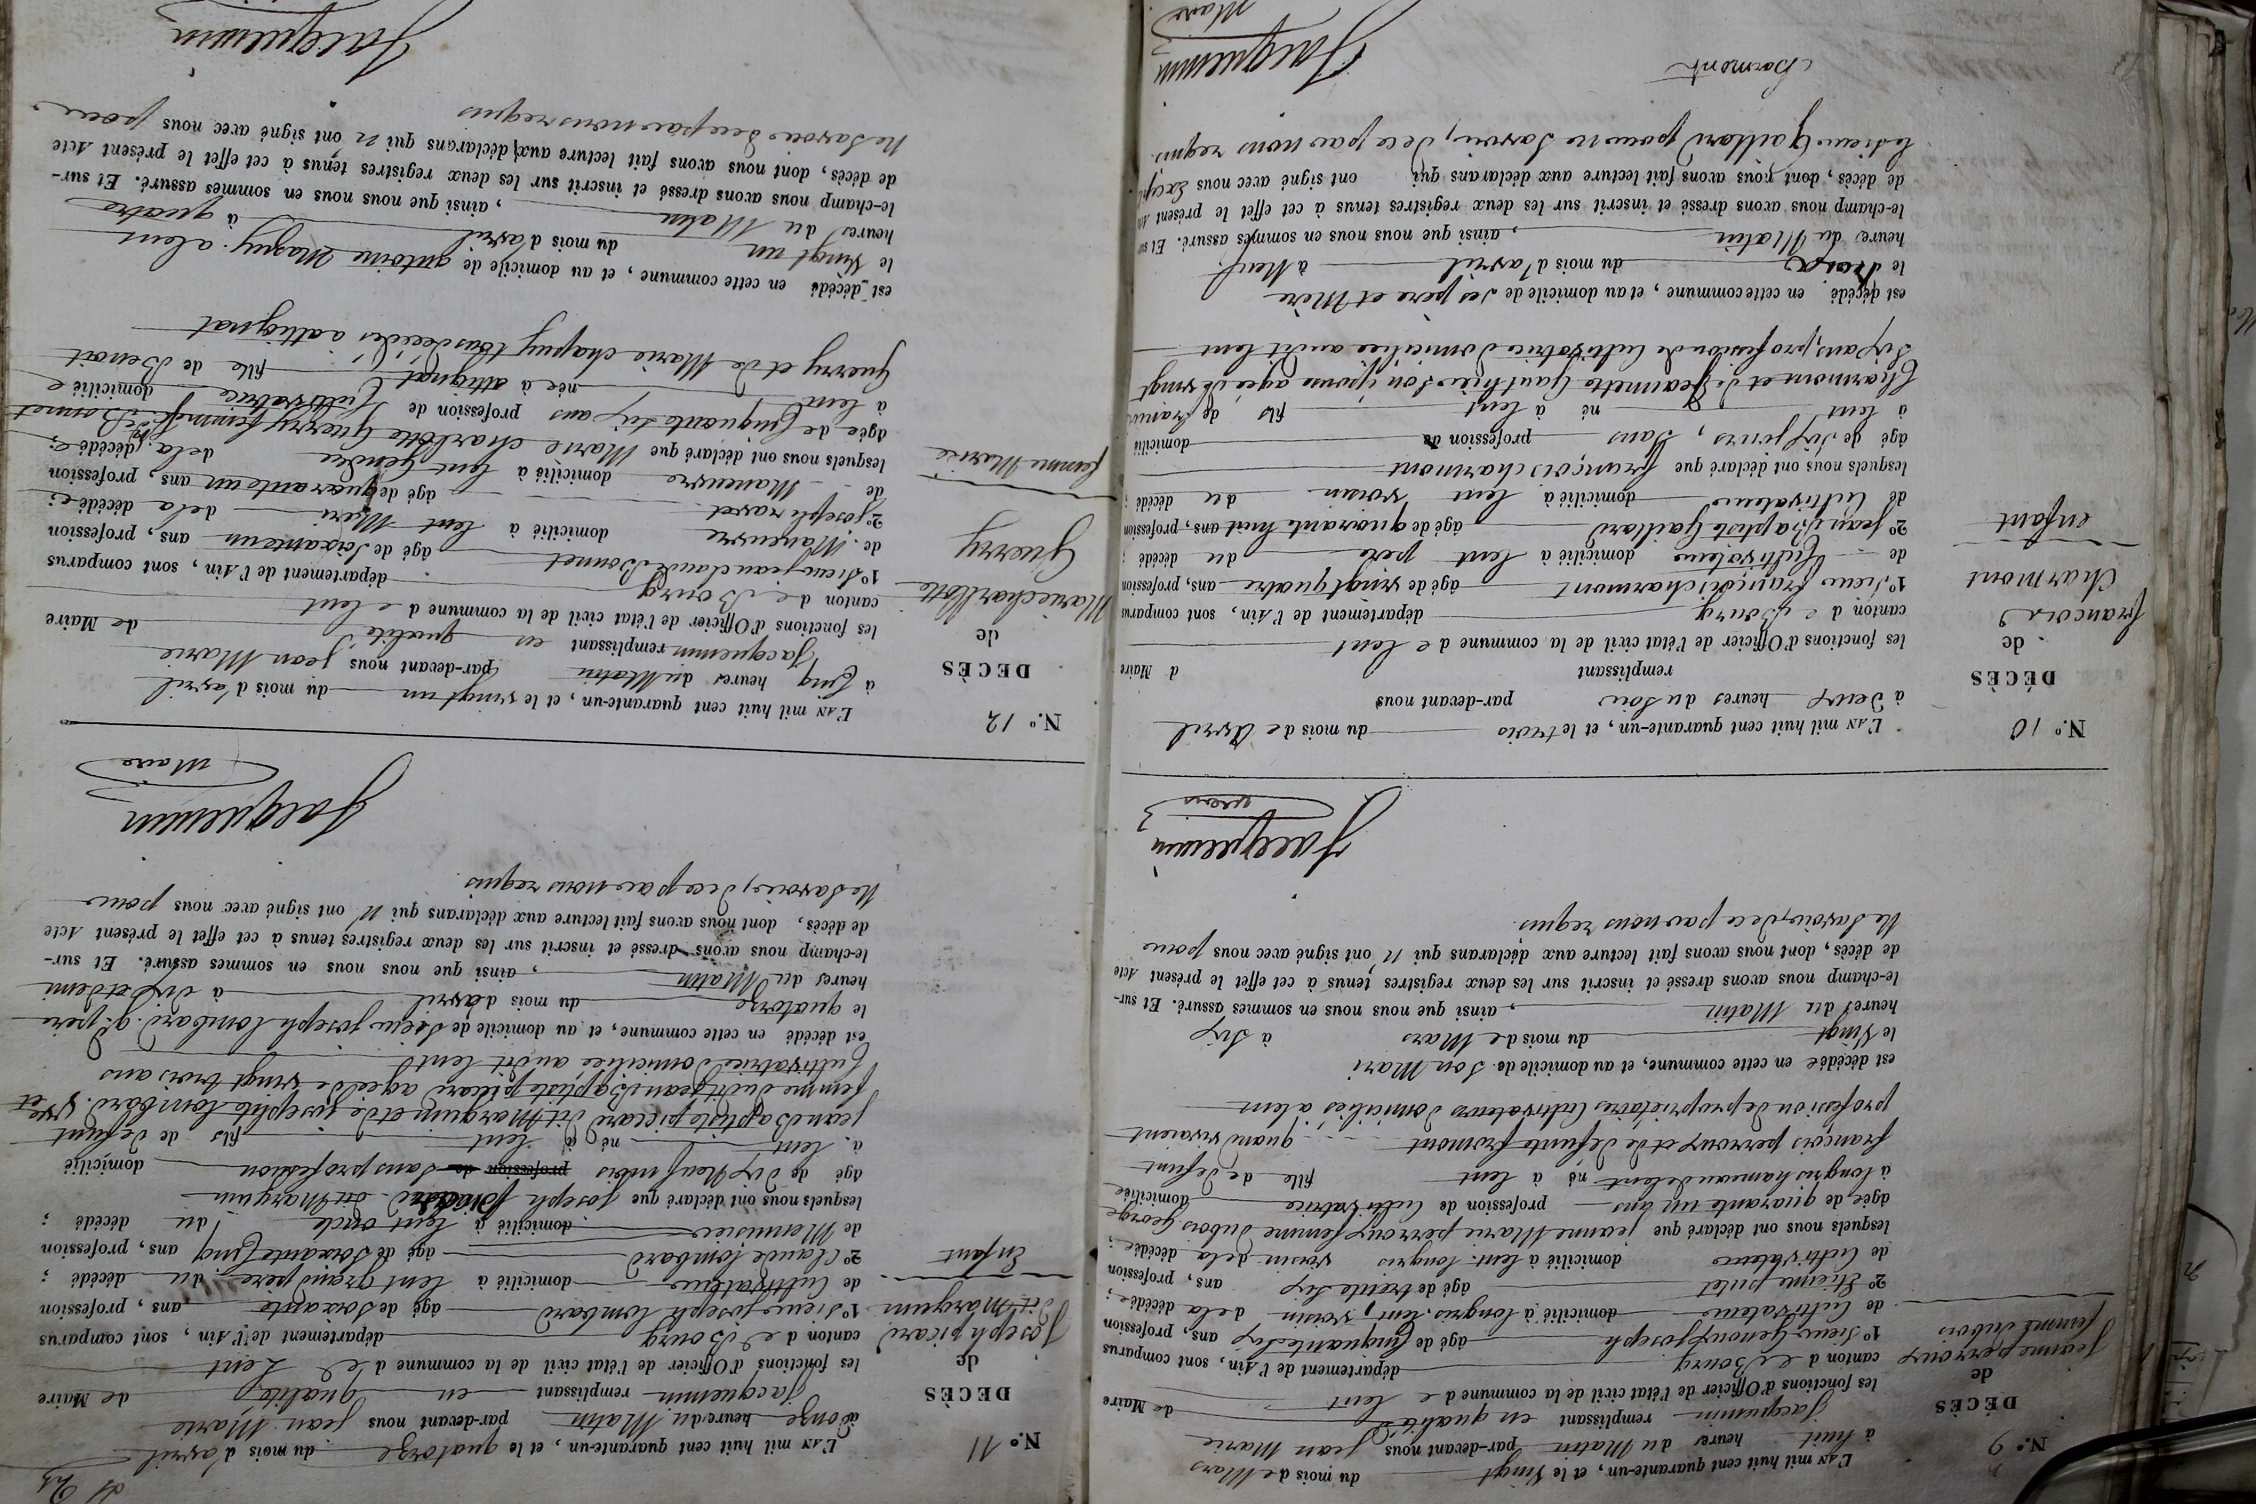 N.º 9
DÉCÈS
de
jeanne perroux
femme dubois
L'AN mil huit cent quarante-un, et le Vingt du mois de Mars
à huit heures du Matin par-devant nous jean Marie
jacquemin remplissant en qualité de Maire
les fonctions d'Officier de l'état civil de la commune de lent
canton de Bourg département de l'Ain, sont comparus
1º Sieur Genoux joseph âgé de Cinquante Six ans, profession
de Cultivateur domicilié à longris. lent, voisin de la décédée;
2º Etienne pulet âgé de trente Six ans, profession
de Cultivateur domicilié à lent. longris voisin de la décédée;
lesquels nous ont déclaré que jeanne Marie perroux femme dubois george
âgée de quarante un ans profession de Cultivatrice domiciliée
à longris hameau de lent né à lent fille de defunt
françois perroux et de defunte fromont quand vivaient
profession de propriétaires Cultivateurs domiciliés à lent
est décédée en cette commune, et au domicile de Son Mari
le Vingt du mois de Mars à Six
heures du Matin, ainsi que nous nous en sommes assuré. Et sur-
le-champ nous avons dressé et inscrit sur les deux registres tenus à cet effet le présent Acte
de décès, dont nous avons fait lecture aux déclarans qui n'ont signé avec nous pour
Ne Savoir, de ce par nous requis.
Jacquemin
N.º 10
DÉCÈS
de
francois
Charmont
enfant
L'AN mil huit cent quarante-un, et le trois du mois de Avril
à Deux heures du Soir par-devant nous
remplissant d Maire
les fonctions d'Officier de l'état civil de la commune de lent
canton de Bourg département de l'Ain, sont comparus
1º Sieur françois charmont âgé de vingt quatre ans, profession
de Cultivateur domicilié à lent père du décédé;
2º jean Baptiste Gaillard âgé de quarante huit ans, profession
de Cultivateur domicilié à lent voisin du décédé;
lesquels nous ont déclaré que françois charmont
âgé de Six jours, Sans profession de domicilié
à lent né à lent fils de françois
Charmont et de jeannette Gauthier Son épouse agée de vingt
Six ans, profession de Cultivatrice domiciliée au dit lent
est décédé en cette commune, et au domicile de Ses père et Mère
le trois du mois d'avril à Neuf
heures du Matin, ainsi que nous nous en sommes assuré. Et sur
le-champ nous avons dressé et inscrit sur les deux registres tenus à cet effet le présent
de décès, dont nous avons fait lecture aux déclarans qui ont signé avec nous Excepté
le Sieur Gaillard pour ne Savoir, de ce par nous requis.
Charmont
Jacquemin
Maire
N.º 11
DÉCÈS
de
joseph picard
dit Marquin
Enfant
L'AN mil huit cent quarante-un, et le quatorze du mois d'avril
à onze heure du Matin par-devant nous jean Marie
jacquemin remplissant en qualité de Maire
les fonctions d'Officier de l'état civil de la commune de Lent
canton de Bourg département de l'Ain, sont comparus
1º Sieur joseph lombard âgé de Soixante ans, profession
de Cultivateur domicilié à lent Grand père du décédé;
2º Claude lombard âgé de Soixante Cinq ans, profession
de Menuisier domicilié à lent oncle du décédé;
lesquels nous ont déclaré que joseph picard dit Marquin
âgé de dix Neuf mois profession de Sans profession domicilié
à lent né à lent fils de defunt
jean Baptiste piccard dit Marquin et de josephte lombard. Vve et
femme du dit jean Baptiste piccard agée de vingt trois ans
Cultivatrice domiciliée au dit lent
est décédé en cette commune, et au domicile de Sieur joseph lombard. gd. père
le quatorze du mois d'avril à dix et demi
heures du Matin, ainsi que nous nous en sommes assuré. Et sur-
le-champ nous avons dressé et inscrit sur les deux registres tenus à cet effet le présent Acte
de décès, dont nous avons fait lecture aux déclarans qui n'ont signé avec nous pour
Ne Savoir, de ce par nous requis.
Jacquemin
Maire
N.º 12
DÉCÈS
de
Marie charlotte
Guerry
femme Marié
L'AN mil huit cent quarante-un, et le vingt un du mois d'avril
à Cinq heures du Matin par-devant nous jean Marie
jacquemin remplissant en qualité de Maire
les fonctions d'Officier de l'état civil de la commune de lent
canton de Bourg département de l'Ain, sont comparus
1º Sieur jean claude Bonnet âgé de Soixante un ans, profession
de Maneuvre domicilié à lent Mari de la décédée;
2º joseph ravet âgé de quarante un ans, profession
de Maneuvre domicilié à lent Gendre de la décédée;
lesquels nous ont déclaré que Marie charlotte Guerry femme Bonnet
âgée de Cinquante Six ans profession de Cultivatrice domiciliée
à lent née à attignat fille de Benoit
Guerry et de Marie chapuy tous décédés à attignat
est décédé en cette commune, et au domicile de antoine Maguy. à lent
le Vingt un du mois d'avril à quatre
heures du Matin, ainsi que nous nous en sommes assuré. Et sur-
le-champ nous avons dressé et inscrit sur les deux registres tenus à cet effet le présent Acte
de décès, dont nous avons fait lecture aux déclarans qui n'ont signé avec nous pour
Ne Savoir de ce par nous requis
Jacquemin